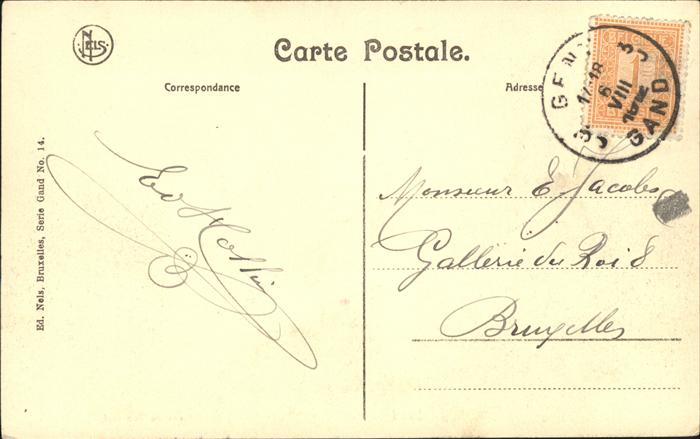 NELS
Carte Postale.
Correspondance
Adresse
BELGIQUE
3 GENT 3
17-18
6
VIII
1912
GAND
Ed. Nels, Bruxelles, Serie Gand No. 14.
Monsieur E. Jacobs
Gallerie du Roi 8
Bruxelles